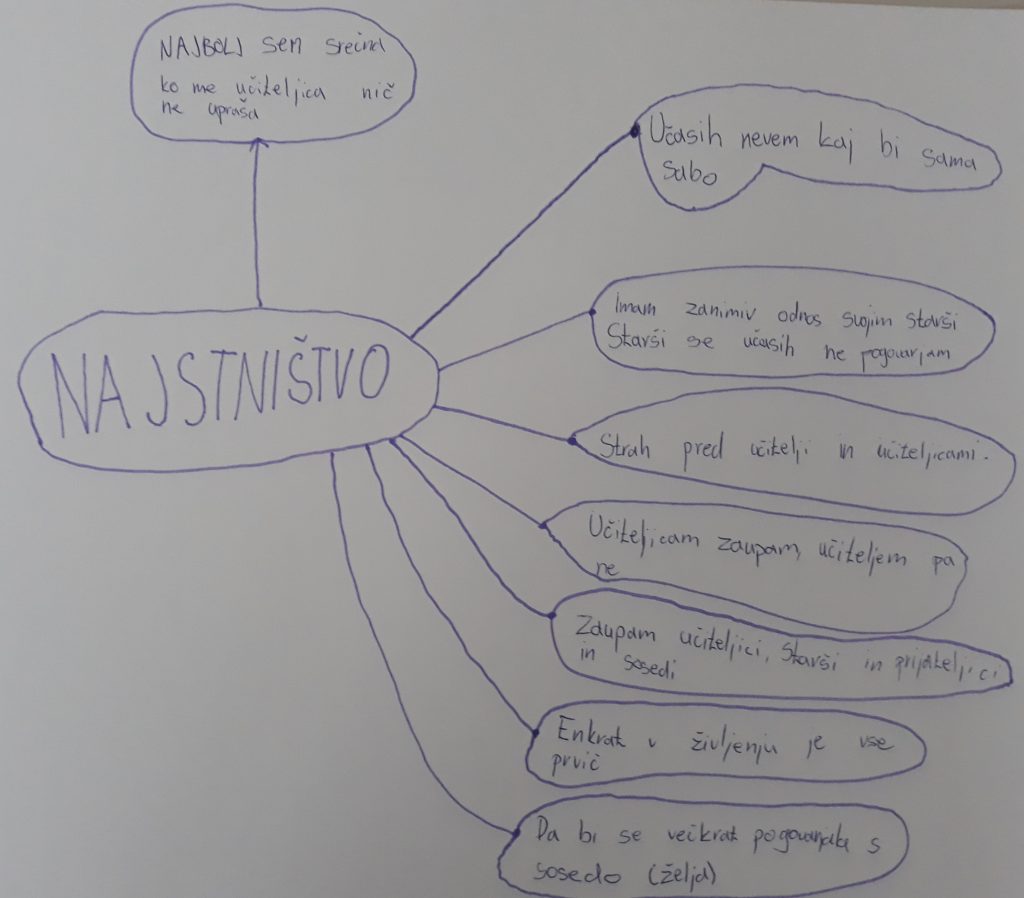 NAJBOLJ sem srečna
ko me učiteljica nič
ne upraša
Včasih nevem kaj bi sama
sabo
NAJSTNIŠTVO
Imam zanimiv odnos svojim starši
Starši se včasih ne pogovarjam
Strah pred učitelji in učiteljicami.
Učiteljicam zaupam, učiteljem pa
ne
Zaupam učiteljici, starši in prijateljici
in sosedi
Enkrat v življenju je vse
prvič
Da bi se večkrat pogovarjala s
sosedo (želja)